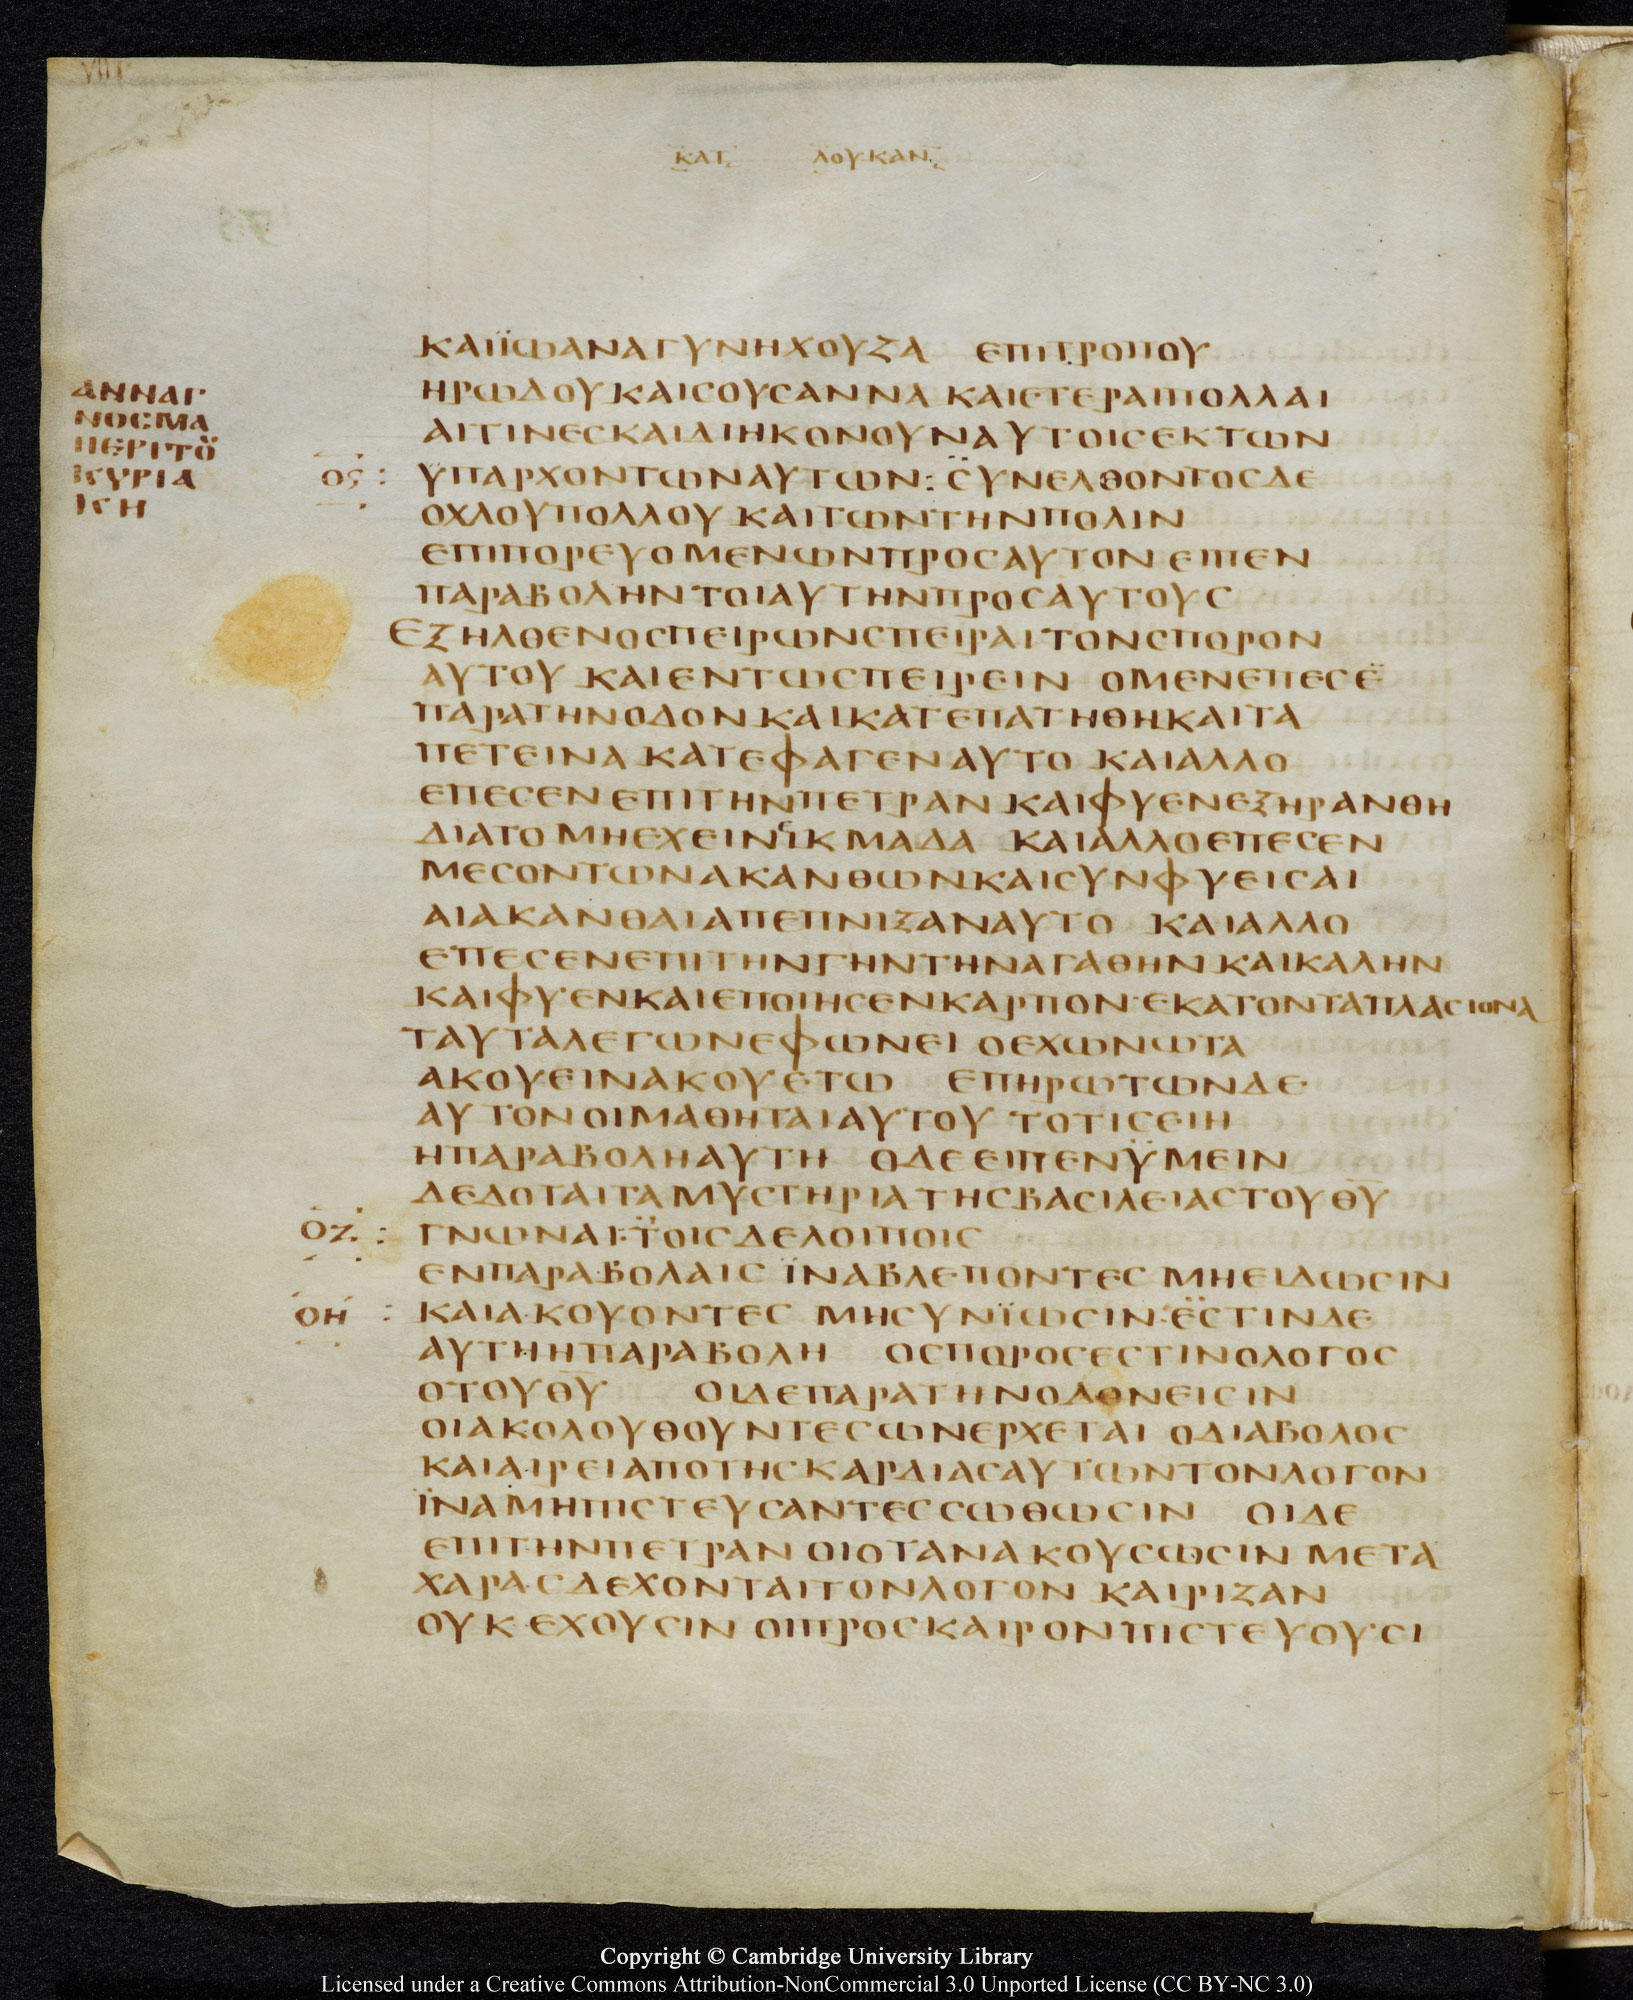 ΚΑΤ ΛΟΥΚΑΝ
ΚΑΙΪΩΑΝΑΓΥΝΗΧΟΥΖΑ ΕΠΙΤΡΟΠΟΥ
ΗΡΩΔΟΥΚΑΙСΟΥСΑΝΝΑ ΚΑΙΕΤΕΡΑΙΠΟΛΛΑΙ
ΑΙΤΙΝΕСΚΑΙΔΙΗΚΟΝΟΥΝΑΥΤΟΙСΕΚΤΩΝ
ΥΠΑΡΧΟΝΤΩΝΑΥΤΩΝ: СΥΝΕΛΘΟΝΤΟСΔΕ
ΟΧΛΟΥΠΟΛΛΟΥ ΚΑΙΤΩΝΤΗΝΠΟΛΙΝ
ΕΠΙΠΟΡΕΥΟΜΕΝΩΝΠΡΟСΑΥΤΟΝ ΕΙΠΕΝ
ΠΑΡΑΒΟΛΗΝΤΟΙΑΥΤΗΝΠΡΟСΑΥΤΟΥС
ΕΞΗΛΘΕΝΟСΠΕΙΡΩΝСΠΕΙΡΑΙΤΟΝСΠΟΡΟΝ
ΑΥΤΟΥ ΚΑΙΕΝΤΩСΠΕΙΡΕΙΝ ΟΜΕΝΕΠΕСΕ̈
ΠΑΡΑΤΗΝΟΔΟΝΚΑΙΚΑΤΕΠΑΤΗΘΗΚΑΙΤΑ
ΠΕΤΕΙΝΑ ΚΑΤΕΦΑΓΕΝΑΥΤΟ ΚΑΙΑΛΛΟ
ΕΠΕСΕΝΕΠΙΤΗΝΠΕΤΡΑΝ ΚΑΙΦΥΕΝΕΞΗΡΑΝΘΗ
ΔΙΑΤΟΜΗΕΧΕΙΝΙΚΜΑΔΑ ΚΑΙΑΛΛΟΕΠΕСΕΝ
ΜΕСΟΝΤΩΝΑΚΑΝΘΩΝΚΑΙСΥΝΦΥΕΙСΑΙ
ΑΙΑΚΑΝΘΑΙΑΠΕΠΝΙΞΑΝΑΥΤΟ ΚΑΙΑΛΛΟ
ΕΠΕСΕΝΕΠΙΤΗΝΓΗΝΤΗΝΑΓΑΘΗΝ ΚΑΙΚΑΛΗΝ
ΚΑΙΦΥΕΝΚΑΙΕΠΟΙΗСΕΝΚΑΡΠΟΝ·ΕΚΑΤΟΝΤΑΠΛΑСΙΟΝΑ
ΤΑΥΤΑΛΕΓΩΝΕΦΩΝΕΙ ΟΕΧΩΝΩΤΑ
ΑΚΟΥΕΙΝΑΚΟΥΕΤΩ ΕΠΗΡΩΤΩΝΔΕ
ΑΥΤΟΝΟΙΜΑΘΗΤΑΙΑΥΤΟΥ ΤΟΤΙСΕΙΗ
ΗΠΑΡΑΒΟΛΗΑΥΤΗ ΟΔΕΕΙΠΕΝΫΜΕΙΝ
ΔΕΔΟΤΑΙΤΑΜΥСΤΗΡΙΑΤΗСΒΑСΙΛΕΙΑСΤΟΥΘΥ
ΓΝΩΝΑΙ:ΤΟΙСΔΕΛΟΙΠΟΙС
ΕΝΠΑΡΑΒΟΛΑΙС ΪΝΑΒΛΕΠΟΝΤΕС ΜΗΕΙΔΩСΙΝ
ΚΑΙΑΚΟΥΟΝΤΕС ΜΗСΥΝΪΩСΙΝ:ΕСΤΙΝΔΕ
ΑΥΤΗΗΠΑΡΑΒΟΛΗ ΟСΠΟΡΟСΕСΤΙΝΟΛΟΓΟС
ΟΤΟΥΘΥ ΟΙΔΕΠΑΡΑΤΗΝΟΔΟΝΕΙСΙΝ
ΟΙΑΚΟΛΟΥΘΟΥΝΤΕСΩΝΕΡΧΕΤΑΙ ΟΔΙΑΒΟΛΟС
ΚΑΙΑΙΡΕΙΑΠΟΤΗСΚΑΡΔΙΑСΑΥΤΩΝΤΟΝΛΟΓΟΝ
ΪΝΑΜΗΠΙСΤΕΥСΑΝΤΕССΩΘΩСΙΝ ΟΙΔΕ
ΕΠΙΤΗΝΠΕΤΡΑΝ ΟΙΟΤΑΝΑΚΟΥСΩСΙΝ ΜΕΤΑ
ΧΑΡΑСΔΕΧΟΝΤΑΙΤΟΝΛΟΓΟΝ ΚΑΙΡΙΖΑΝ
ΟΥΚΕΧΟΥСΙΝ ΟΙΠΡΟСΚΑΙΡΟΝΠΙСΤΕΥΟΥСΙ
ΑΝΝΑΓ
ΝΟСΜΑ
ΠΕΡΙΤΟ̈
ΚΥΡΙΑ
ΚΗ
Ος :
ΟΖ :
ΟΗ :
Copyright © Cambridge University Library
Licensed under a Creative Commons Attribution-NonCommercial 3.0 Unported License (CC BY-NC 3.0)